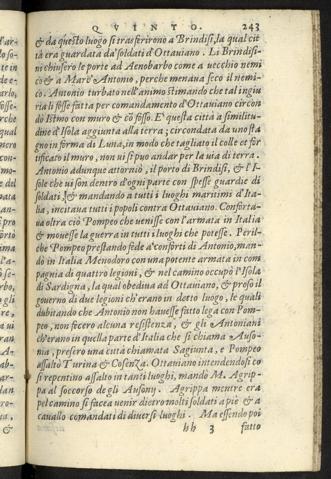 QVINTO. 243
& da questo luogo si trasferirono a Brindisi, la qual cit
tà era guardata da' soldati d'Ottaviano. Li Brindisi-
ni chiusero le porte ad Aenobarbo come a vecchio nemi
co & a Marc'Antonio, perche menaua seco il nemi-
co. Antonio turbato nell'animo stimando che tal ingiu
ria li fosse fatta per comandamento d'Ottauiano circon
dò Istmo con muro & cō fosso. E' questa città a similitu-
dine d'Isola aggiunta alla terra; circondata da uno sta
gno in forma di Luna, in modo che tagliato il colle et for
tificato il muro, non ui si puo andar per la uia di terra.
Antonio adunque attorniò, il porto di Brindisi, & l'I-
sole che ui son dentro d'ogni parte con spesse guardie di
soldati, & mandando a tutti i luoghi maritimi d'Ita-
lia, incitaua tutti i popoli contra Ottauiano. Conforta-
ua oltra ciò Pompeo che uenisse con l'armata in Italia
& mouesse la guerra in tutti i luoghi che potesse. Peril-
che Pompeo prestando fede a' conforti di Antonio, man-
dò in Italia Menodoro con una potente armata in com
pagnia di quattro legioni, & nel camino occupò l'Isola
di Sardigna, la qual obediua ad Ottauiano, & preso il
gouerno di due legioni ch'erano in detto luogo, le quali
dubitando che Antonio non hauesse fatto lega con Pom-
peo, non fecero alcuna resistenza, & gli Antoniani
ch'erano in quella parte d'Italia che si chiama Auso-
nia, presero una città chiamata Sagiunta, e Pompeo
assaltò Turina & Cosenza. Ottauiano intendendosi co
si repentino assalto in tanti luoghi, mandò M. Agrip-
pa al soccorso de gli Ausony. Agrippa mentre era
pel camino si facea uenir dietro molti soldati a piè & a
cauallo comandati di diuersi luoghi. Ma essendo poi
hh 3 fatto